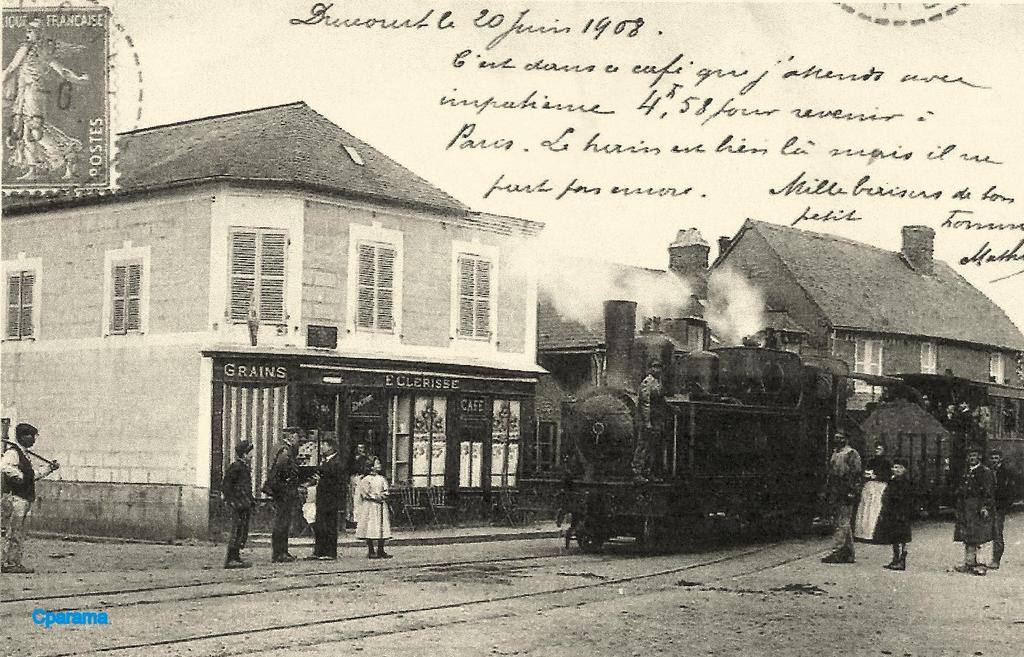 IQUE FRANÇAISE
POSTES
Drucourt le 20 Juin 1908.
C'est dans ce café que j'attends avec
impatience 4h,58 pour revenir à
Paris. Le train est bien là mais il ne
part pas encore. Mille baisers de ton
petit
GRAINS
E CLERISSE
CAFÉ
Cparama